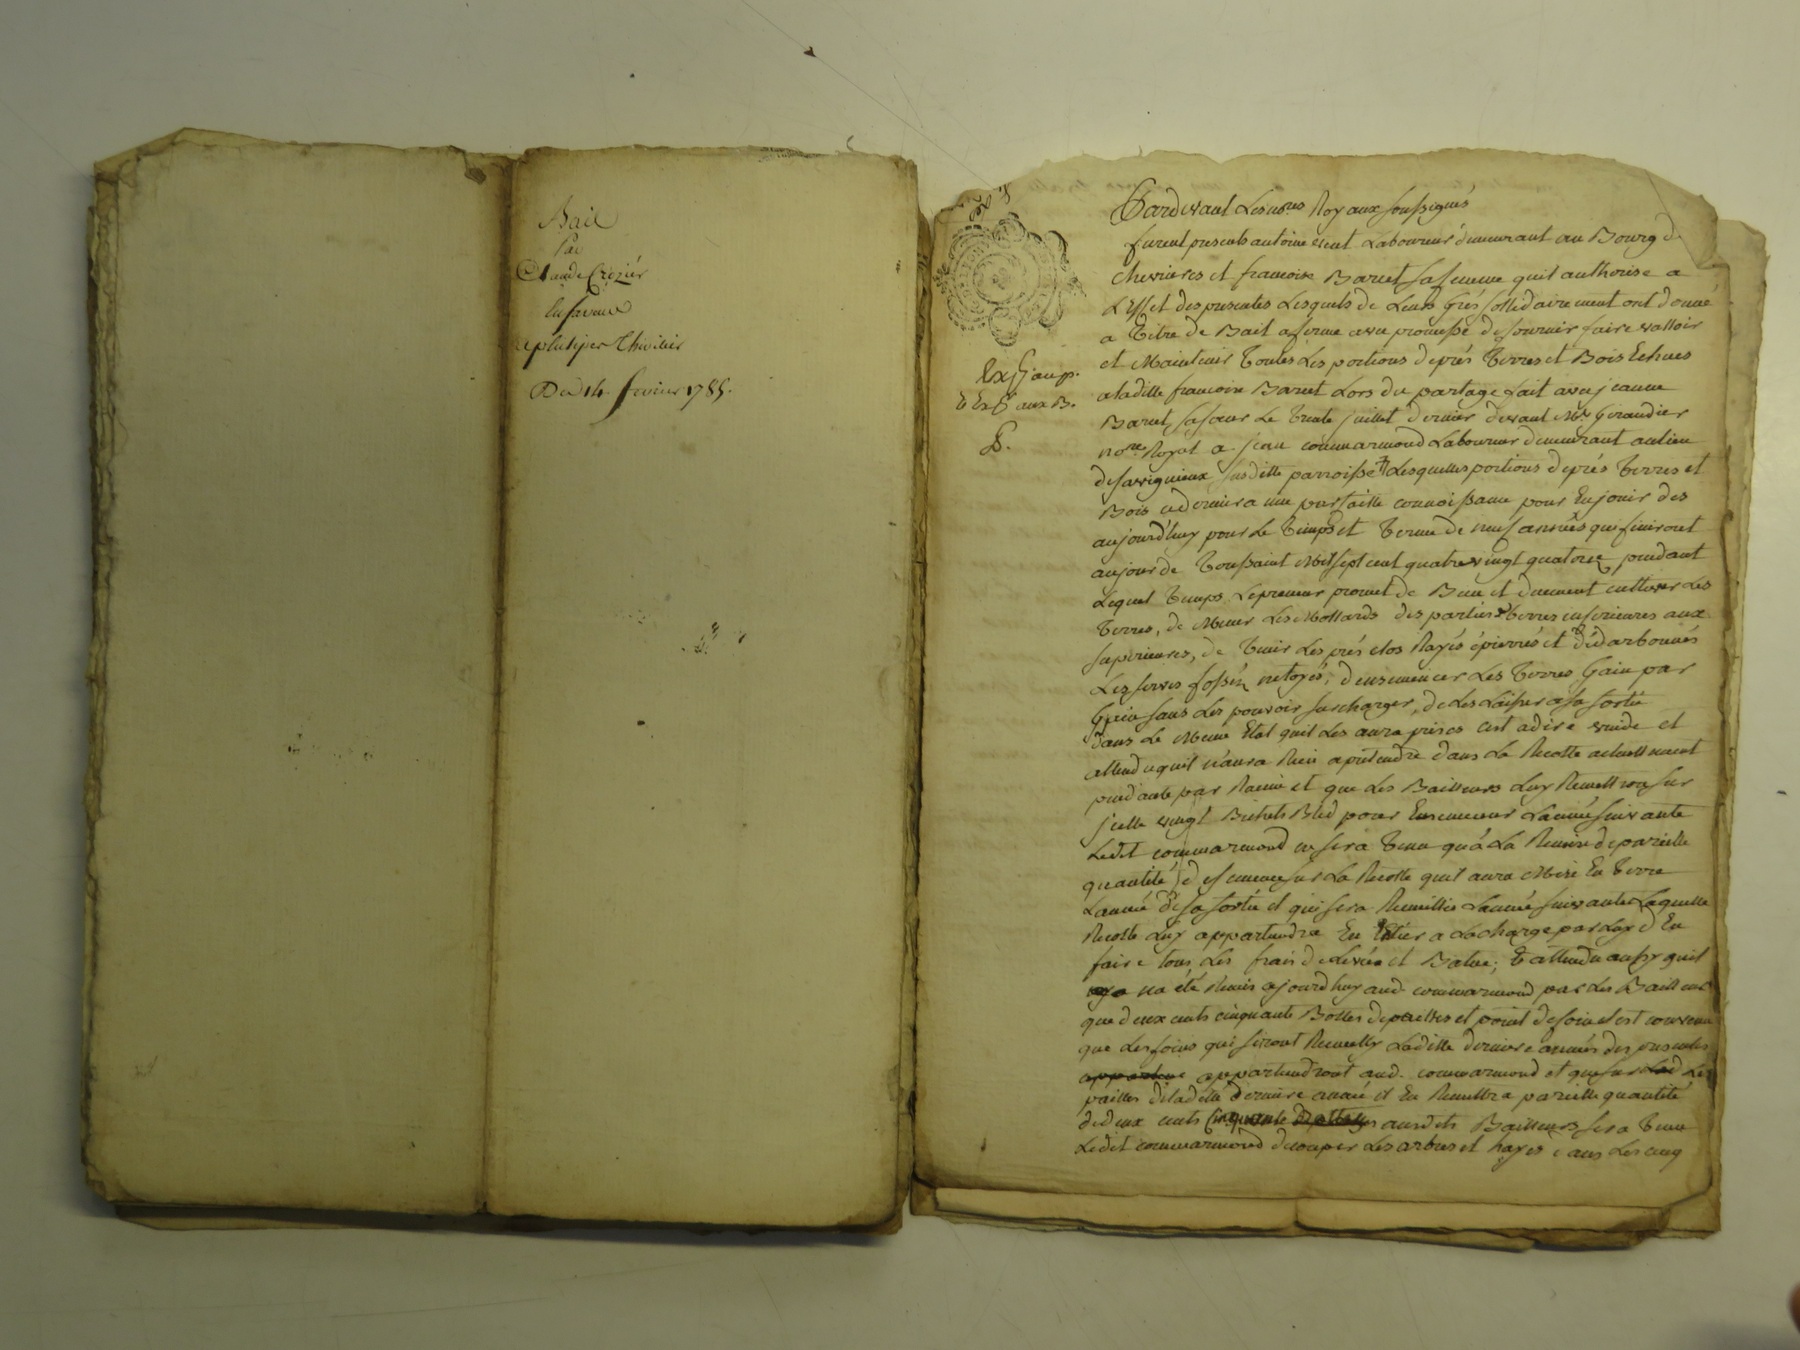 Bail
Par
Claude Crozier
En faveur
De philiper Thivilier
Du 14 fevrier 1785.
Exp. j au p.
Et Ex. aux B.
Pardevant Les no.res Royaux soussignés
furent presents antoine Laboureur demeurant au Bourg de
chevrieres et francoise Barcet sa femme quil authorise a
L'Effet des presentes Lesquels de Leurs Grés sollidairement ont donné
a Titre de Bail a ferme avec promesse de fournir faire valloir
et Maintenir Toutes Les portions de prés Terres et Bois Echues
a laditte francoise Barcet Lors du partage fait avec jeanne
Barcet sa sœur Le Trente juillet dernier devant Me Giraudier
no.re Royal a jean commarmond Laboureur demeurant au lieu
de savignieux susditte parroisse Lesquelles portions de prés Terres et
Bois ce dernier a une parfaitte connoissance pour En jouir des
aujourd'huy pour Le Temps et Terme de neuf années qui finiront
au jour de Toussaint Mil sept cent quatre vingt quatorze pendant
Lequel Temps Le preneur promet de Bien et duement cultiver Les
Terres, de Mener Les Mollards des parties Terres inferieures aux
superieures, de Tenir Les prés clos Rayés épierrés et dédarbonnés
Les serves fossés netoyés, d'ensemencer Les Terres Gain par
Gain sans Les pouvoir surcharger, de Les Laisser a sa sortie
dans Le Meme Etat quil Les aura prises cest a dire vuide et
attendu quil n'aura Rien a prétendre dans La Recolte actuellement
pendante par Racine et que Les Bailleurs Luy Remettron sur
jcelle vingt Bichets Bled pour Ensemencer L'année suivante
Ledit commarmond ne sera Tenu qu'á La Remise de pareille
quantité de semence sur La Recolte quil aura Mise En Terre
L'année de sa sortie et qui sera Recueillie L'année suivante Laquelle
Recolte Luy appartiendra En Entier a La charge par Luy d'En
faire tous Les frais de Levée et Batue; Et attendu aussy quil
na été Remis ajourdhuy aud. commarmond par Les Bailleurs
que deux cents cinquante Bottes de pailles et point de foin il est convenu
que Les foins qui seront Recueilly Laditte derniere année des presentes
appartiendront aud. commarmond et que sur Les
pailles de ladette derniere année il En Remettra pareille quantité
de deux cents Cinquante Bottes ausdits Bailleurs sera Tenu
Ledit commarmond de couper Les arbres et hayes dans Les cinq